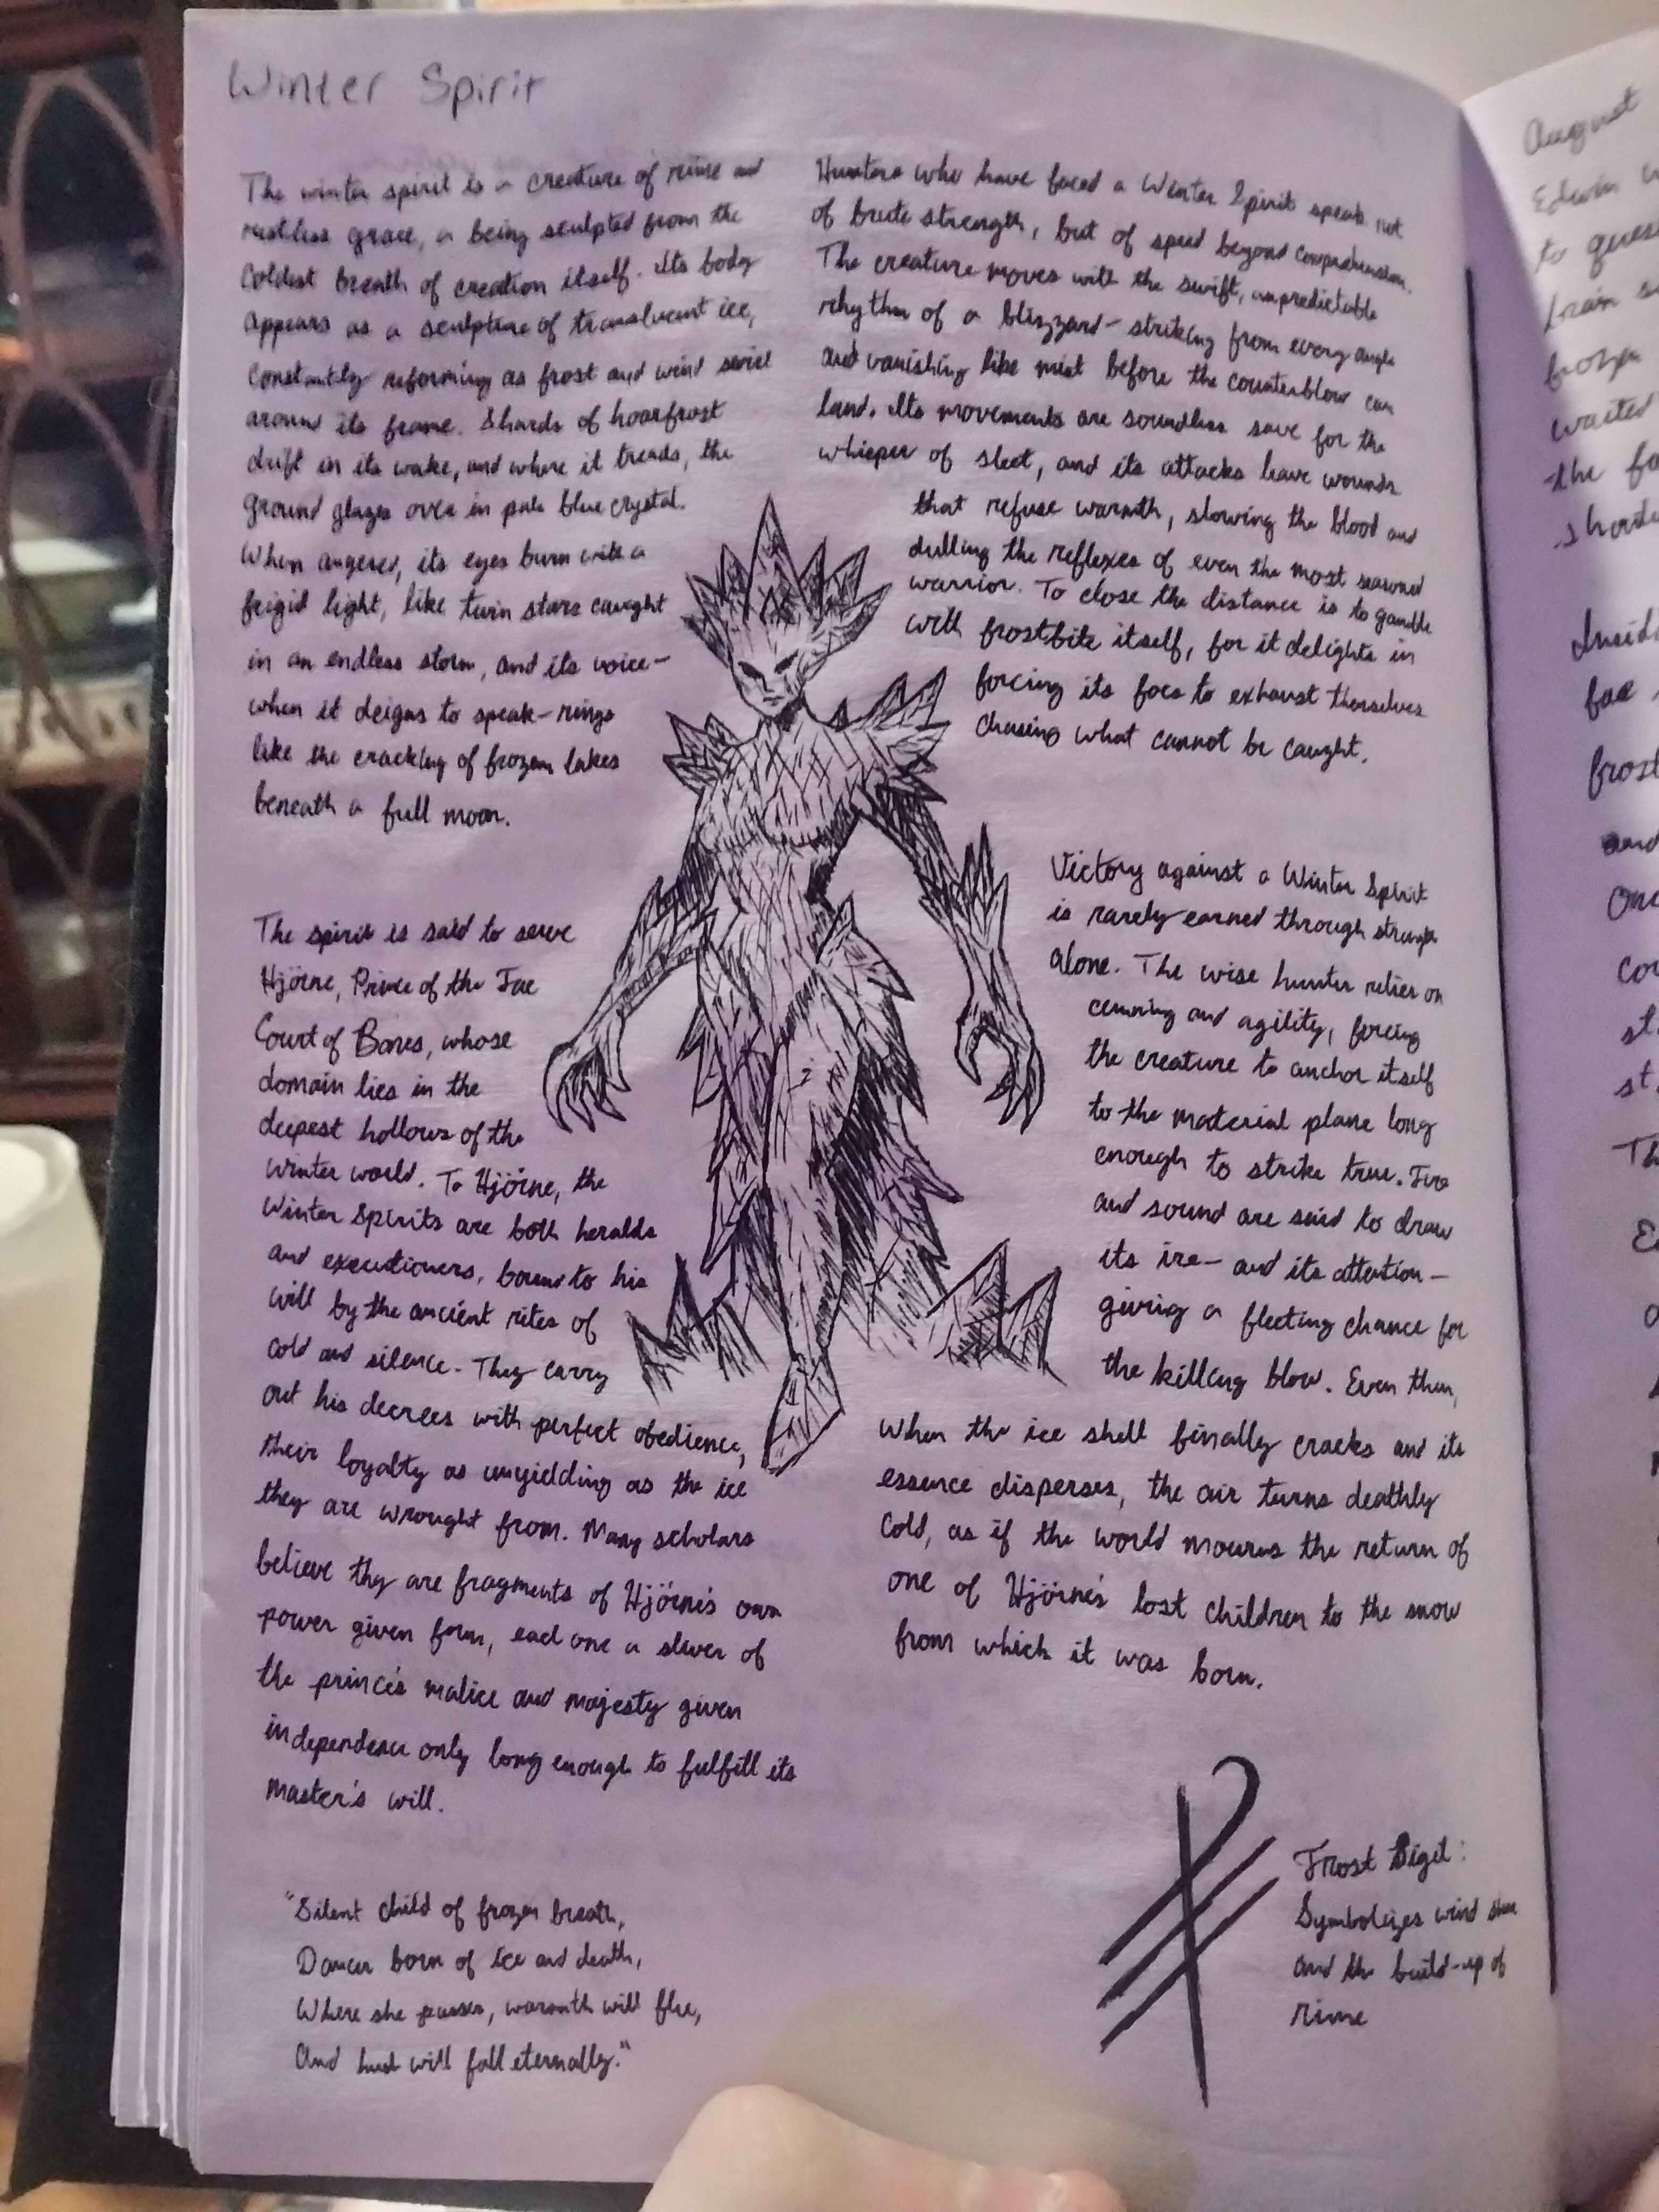 Winter Spirit
The winter spirit is a creature of rime and
restless grace, a being sculpted from the
coldest breath of creation itself. Its body
appears as a sculpture of translucent ice,
constantly reforming as frost and wind swirl
around its frame. Shards of hoarfrost
drift in its wake, and where it treads, the
ground glazes over in pale blue crystal.
When angered, its eyes burn with a
frigid light, like twin stars caught
in an endless storm, and its voice—
when it deigns to speak—rings
like the cracking of frozen lakes
beneath a full moon.
The spirit is said to serve
Hjörne, Prince of the Fae
Court of Bones, whose
domain lies in the
deepest hollows of the
winter world. To Hjörne, the
Winter Spirits are both heralds
and executioners, bound to his
will by the ancient rites of
cold and silence. They carry
out his decrees with perfect obedience,
their loyalty as unyielding as the ice
they are wrought from. Many scholars
believe they are fragments of Hjörne's own
power given form, each one a sliver of
the prince's malice and majesty given
independence only long enough to fulfill its
master's will.
"Silent child of frozen breath,
Dancer born of ice and death,
Where she passes, warmth will flee,
And hush will fall eternally."
Hunters who have faced a Winter Spirit speak not
of brute strength, but of speed beyond comprehension.
The creature moves with the swift, unpredictable
rhythm of a blizzard—striking from every angle
and vanishing like mist before the counterblow can
land. Its movements are soundless save for the
whisper of sleet, and its attacks leave wounds
that refuse warmth, slowing the blood and
dulling the reflexes of even the most seasoned
warrior. To close the distance is to gamble
with frostbite itself, for it delights in
forcing its foes to exhaust themselves
chasing what cannot be caught.
Victory against a Winter Spirit
is rarely earned through strength
alone. The wise hunter relies on
cunning and agility, forcing
the creature to anchor itself
to the material plane long
enough to strike true. Fire
and sound are said to draw
its ire—and its attention—
giving a fleeting chance for
the killing blow. Even then,
when the ice shell finally cracks and its
essence disperses, the air turns deathly
cold, as if the world mourns the return of
one of Hjörne's lost children to the snow
from which it was born.
Frost Sigil:
Symbolizes wind
and the build-up of
rime
August
Edwin
to
brain
waited
the